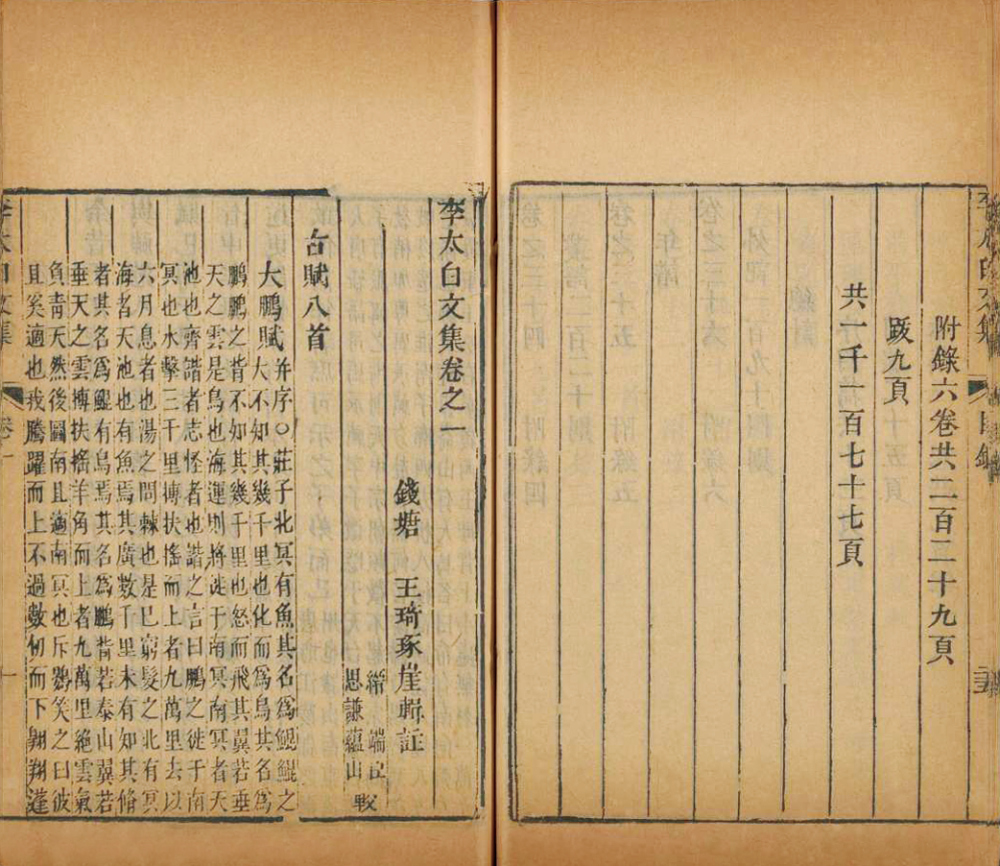 李太白文集 目錄
附錄六卷共二百二十九頁
跋九頁
共一千一百七十七頁
李太白文集卷之一
錢塘 王琦琢崖輯註
縉端臣
思謙蘊山 較
古賦八首
大鵬賦 并序○莊子北冥有魚其名爲鯤鯤之
大不知其幾千里也化而爲鳥其名爲
鵬鵬之背不知其幾千里也怒而飛其翼若垂
天之雲是鳥也海運則將徙于南冥南冥者天
池也齊諧者志怪者也諧之言曰鵬之徙于南
冥也水擊三千里摶扶搖而上者九萬里去以
六月息者也湯之問棘也是已窮髮之北有冥
海者天池也有魚焉其廣數千里未有知其脩
者其名爲鯤有鳥焉其名爲鵬背若泰山翼若
垂天之雲摶扶搖羊角而上者九萬里絕雲氣
負靑天然後圖南且適南冥也斥鷃笑之曰彼
且奚適也我騰躍而上不過數仞而下翺翔蓬
李太白文集 卷一 一